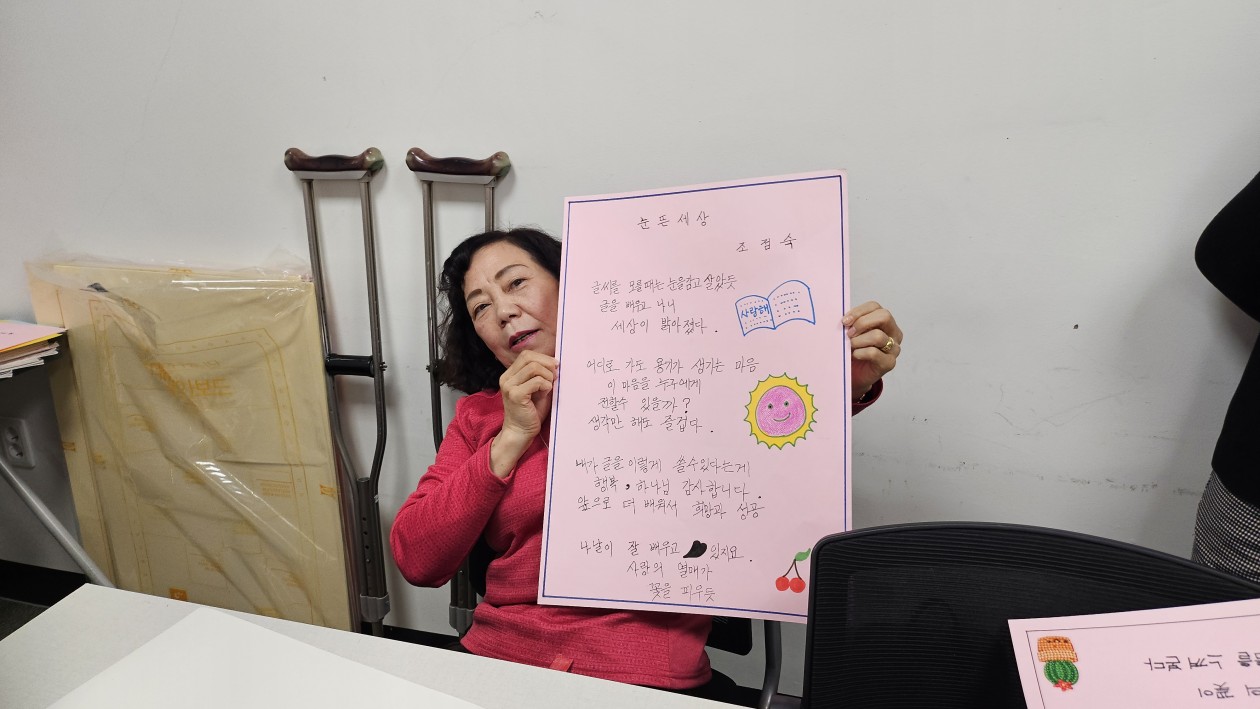 눈 뜬 세상
조 점 숙
글씨를 모를때는 눈을감고 살았듯
글을 배우고 나니
세상이 밝아졌다.
사랑해
어디로 가도 용기가 생기는 마음
이 마음을 누구에게
전할수 있을까?
생각만 해도 즐겁다.
내가 글을 이렇게 쓸수있다는게
행복, 하나님 감사합니다.
앞으로 더 배워서 희망과 성공
나날이 잘 배우고 있지요.
사랑의 열매가
꽃을 피우듯